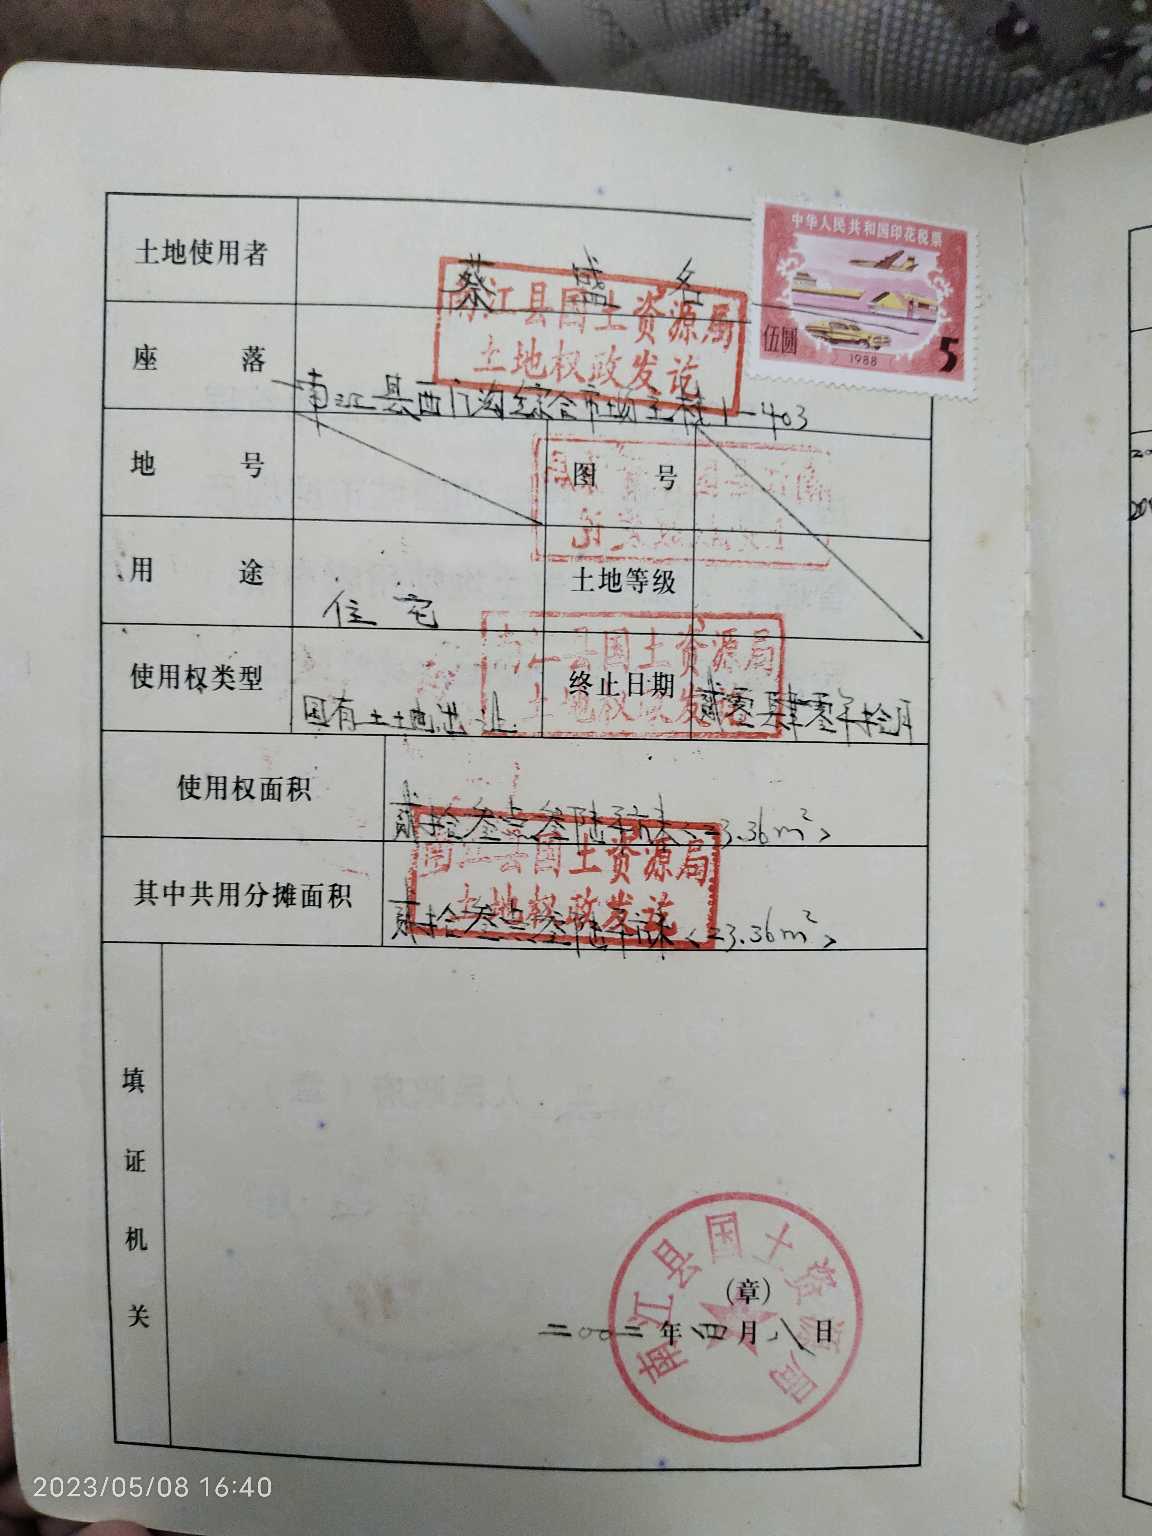 中华人民共和国印花税票
伍圆
1988
5
土地使用者 蔡盛名
南江县国土资源局
土地权政发证
座落 南江县西门沟综合市场主楼1-403
地号
图号
用途 住宅
土地等级
南江县国土资源局
土地权政发证
使用权类型 国有土地出让
终止日期 贰零肆零年拾月
使用权面积 贰拾叁点叁陆平方米<23.36m²>
南江县国土资源局
土地权政发证
其中共用分摊面积 贰拾叁点叁陆平方米<23.36m²>
填证机关
南江县国土资源局
(章)
二00二年四月八日
2023/05/08 16:40